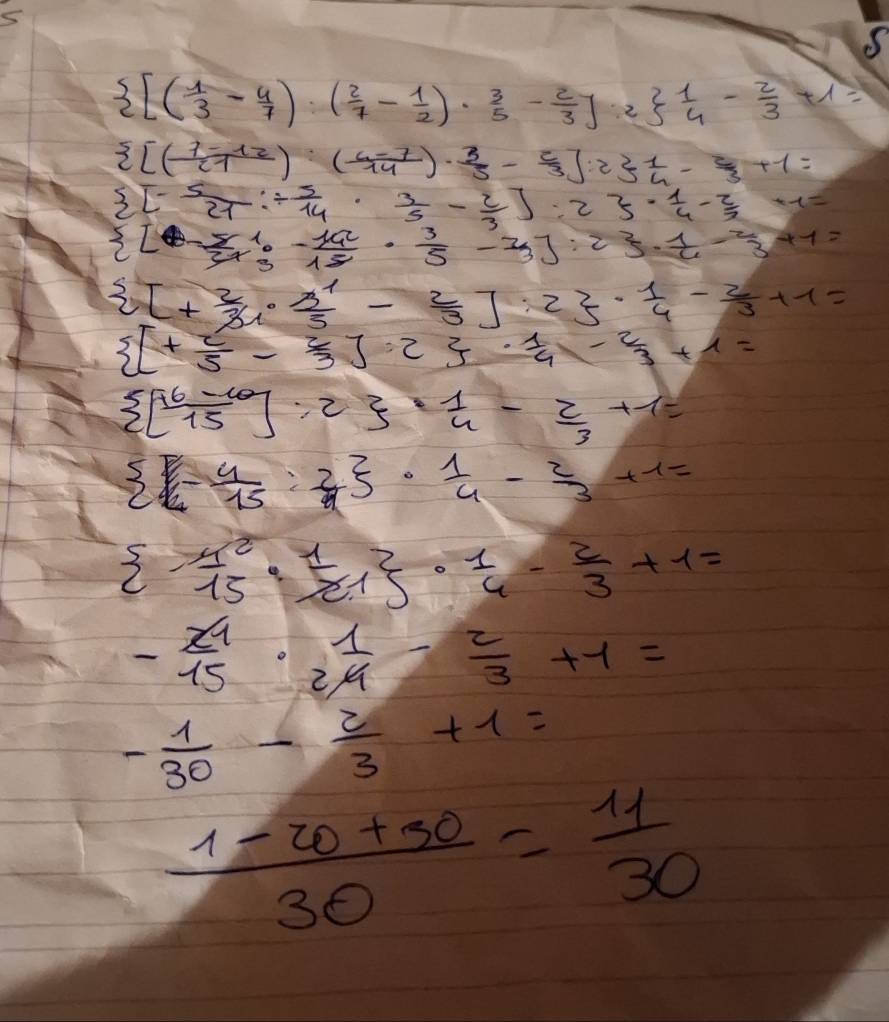 5
{[(1/3 - 4/7) : (2/7 - 1/2) · 3/5 - 2/3] : 2} 1/4 - 2/3 + 1 =
{[(7-12/21) : (4-7/14) · 3/5 - 2/3] : 2} 1/4 - 2/3 + 1 =
{[- 5/21 : - 3/14 · 3/5 - 2/3] : 2} · 1/4 - 2/3 + 1 =
· 3/5 - 2/3] : 2} · 1/4 - 2/3 + 1 =
{[+ 2/3 · 3/5 - 2/3] : 2} · 1/4 - 2/3 + 1 =
{[+ 2/5 - 2/3] : 2} · 1/4 - 2/3 + 1 =
{[6-10/15] : 2} · 1/4 - 2/3 + 1 =
{- 4/15 : 2} · 1/4 - 2/3 + 1 =
{- 4/15 · 1/2} · 1/4 - 2/3 + 1 =
- 2/15 · 1/4 - 2/3 + 1 =
- 1/30 - 2/3 + 1 =
1-20+30/30 = 11/30